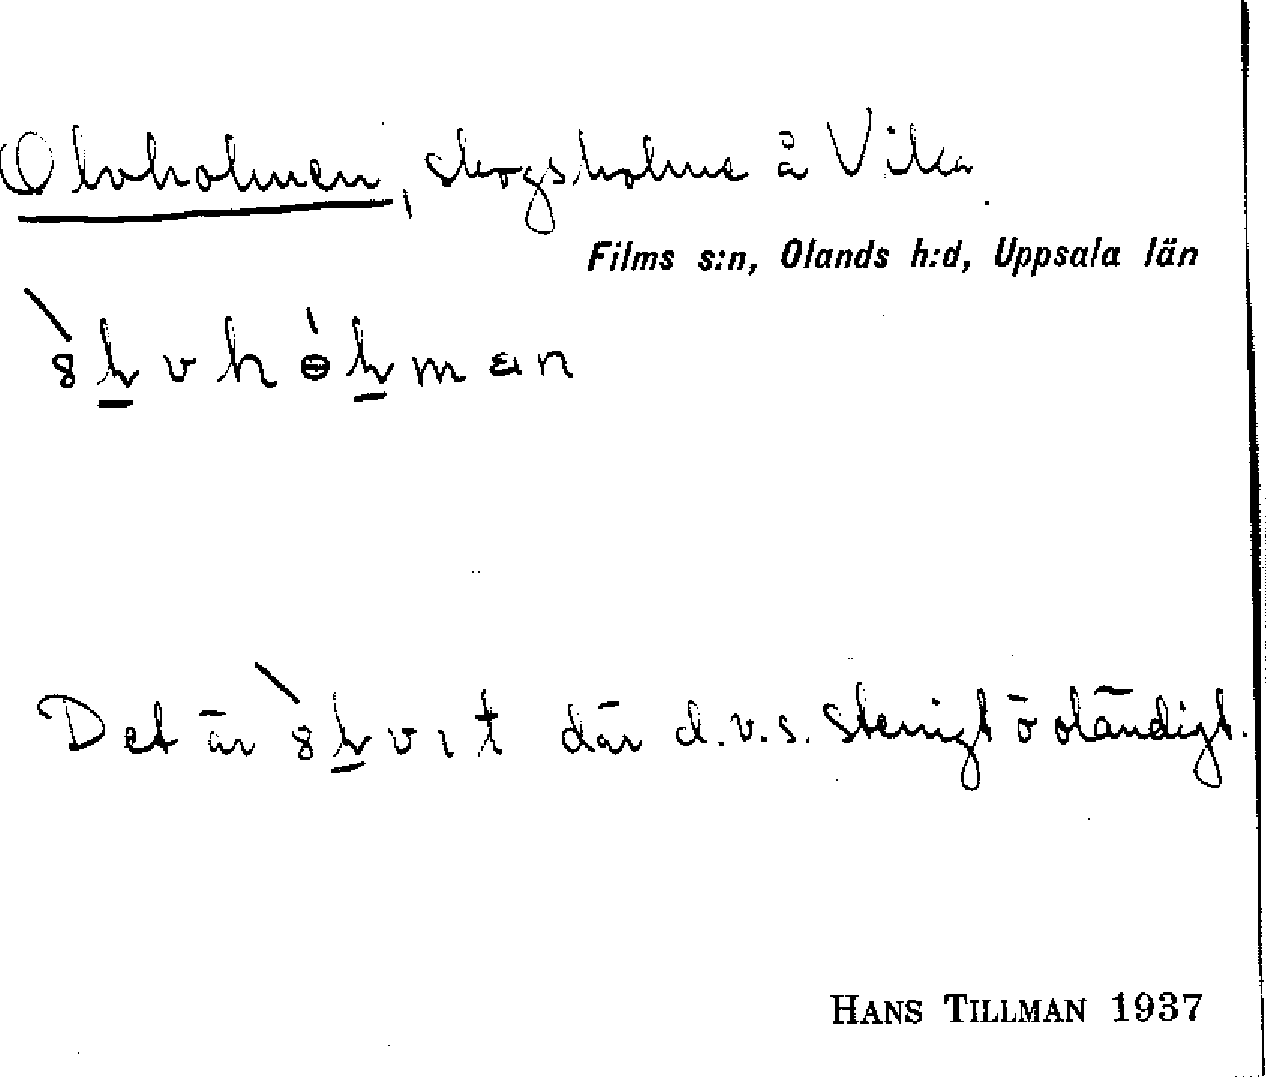 Olvholmen, skogsholme å Vika.
Films s:n, Olands h:d, Uppsala län
Det är där d.v.s. stenigt ö oländigt.
HANS TILLMAN 1937